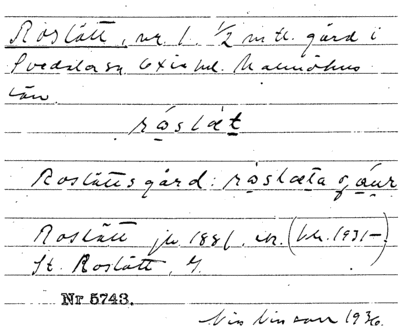 Roslätt, nr. 1. 1/2 mtl. gård i
Svedala sn. Oxie hd. Malmöhus
län.
ró̱slæt̲
Roslättsgård: ro̱slæta g á̱ur
Roslätt jb. 1881. nr. (kk. 1931–)
St. Roslätt, G.
Nr 5743.
Nils Nilsson 1936.